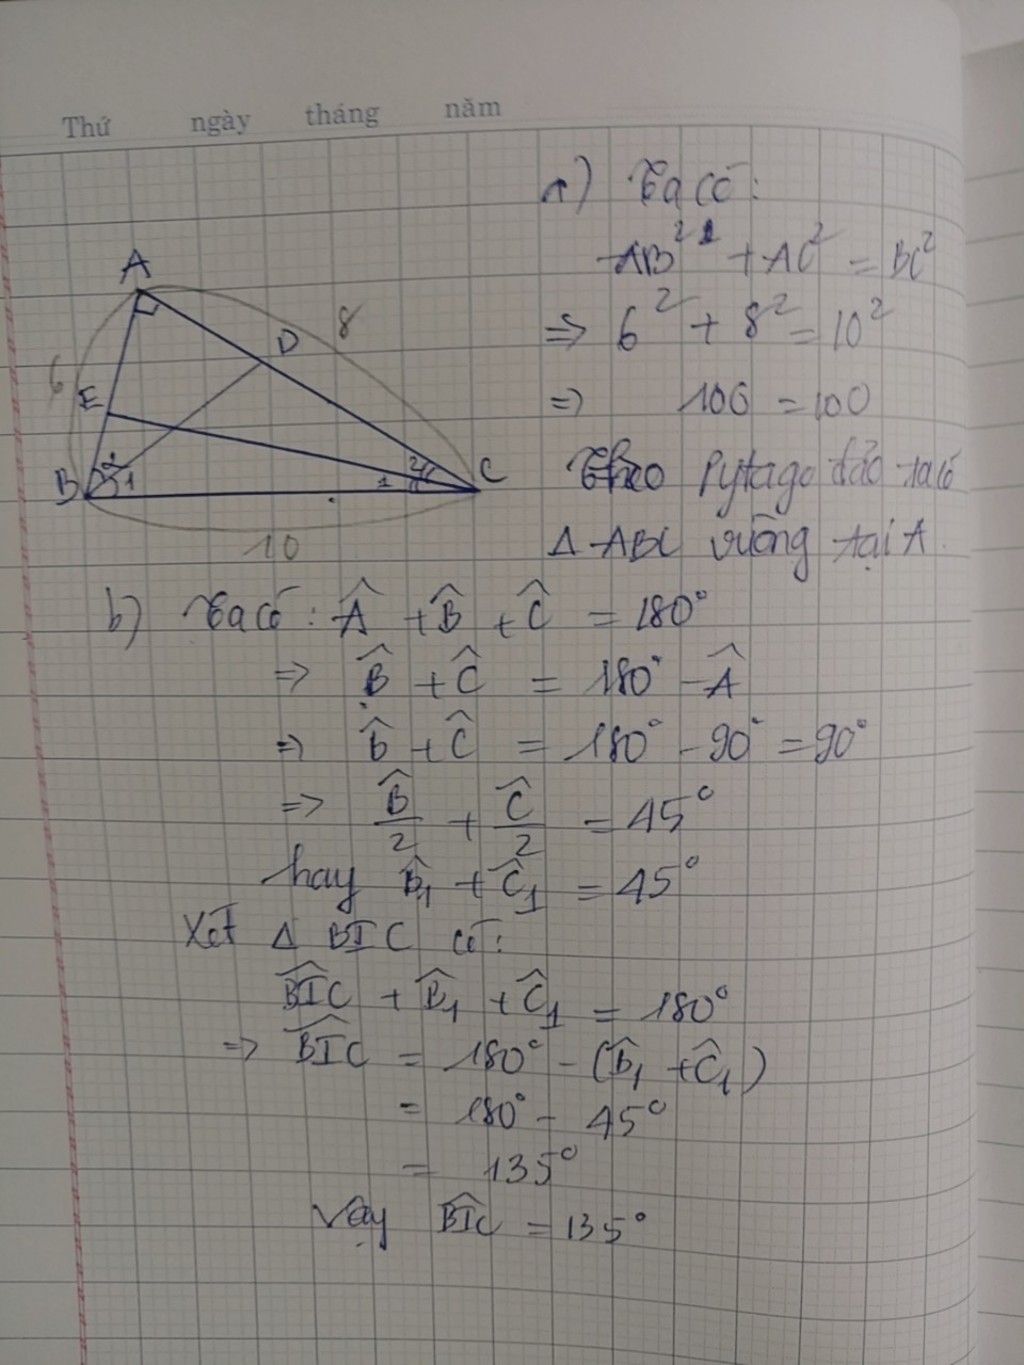 Thứ ngày tháng năm
a) Ta có:
AB² + AC² = BC²
⇒ 6² + 8² = 10²
⇒ 100 = 100
Theo Pytago đảo ta có
Δ ABC vuông tại A.
A
8
D
6
E
B 2 1
2 1 C
10
b) Ta có: Â + B̂ + Ĉ = 180°
⇒ B̂ + Ĉ = 180° - Â
⇒ B̂ + Ĉ = 180° - 90° = 90°
⇒ B̂/2 + Ĉ/2 = 45°
hay B̂₁ + Ĉ₁ = 45°
Xét Δ BIC có:
B͡IC + B̂₁ + Ĉ₁ = 180°
⇒ B͡IC = 180° - (B̂₁ + Ĉ₁)
= 180° - 45°
= 135°
Vậy B͡IC = 135°